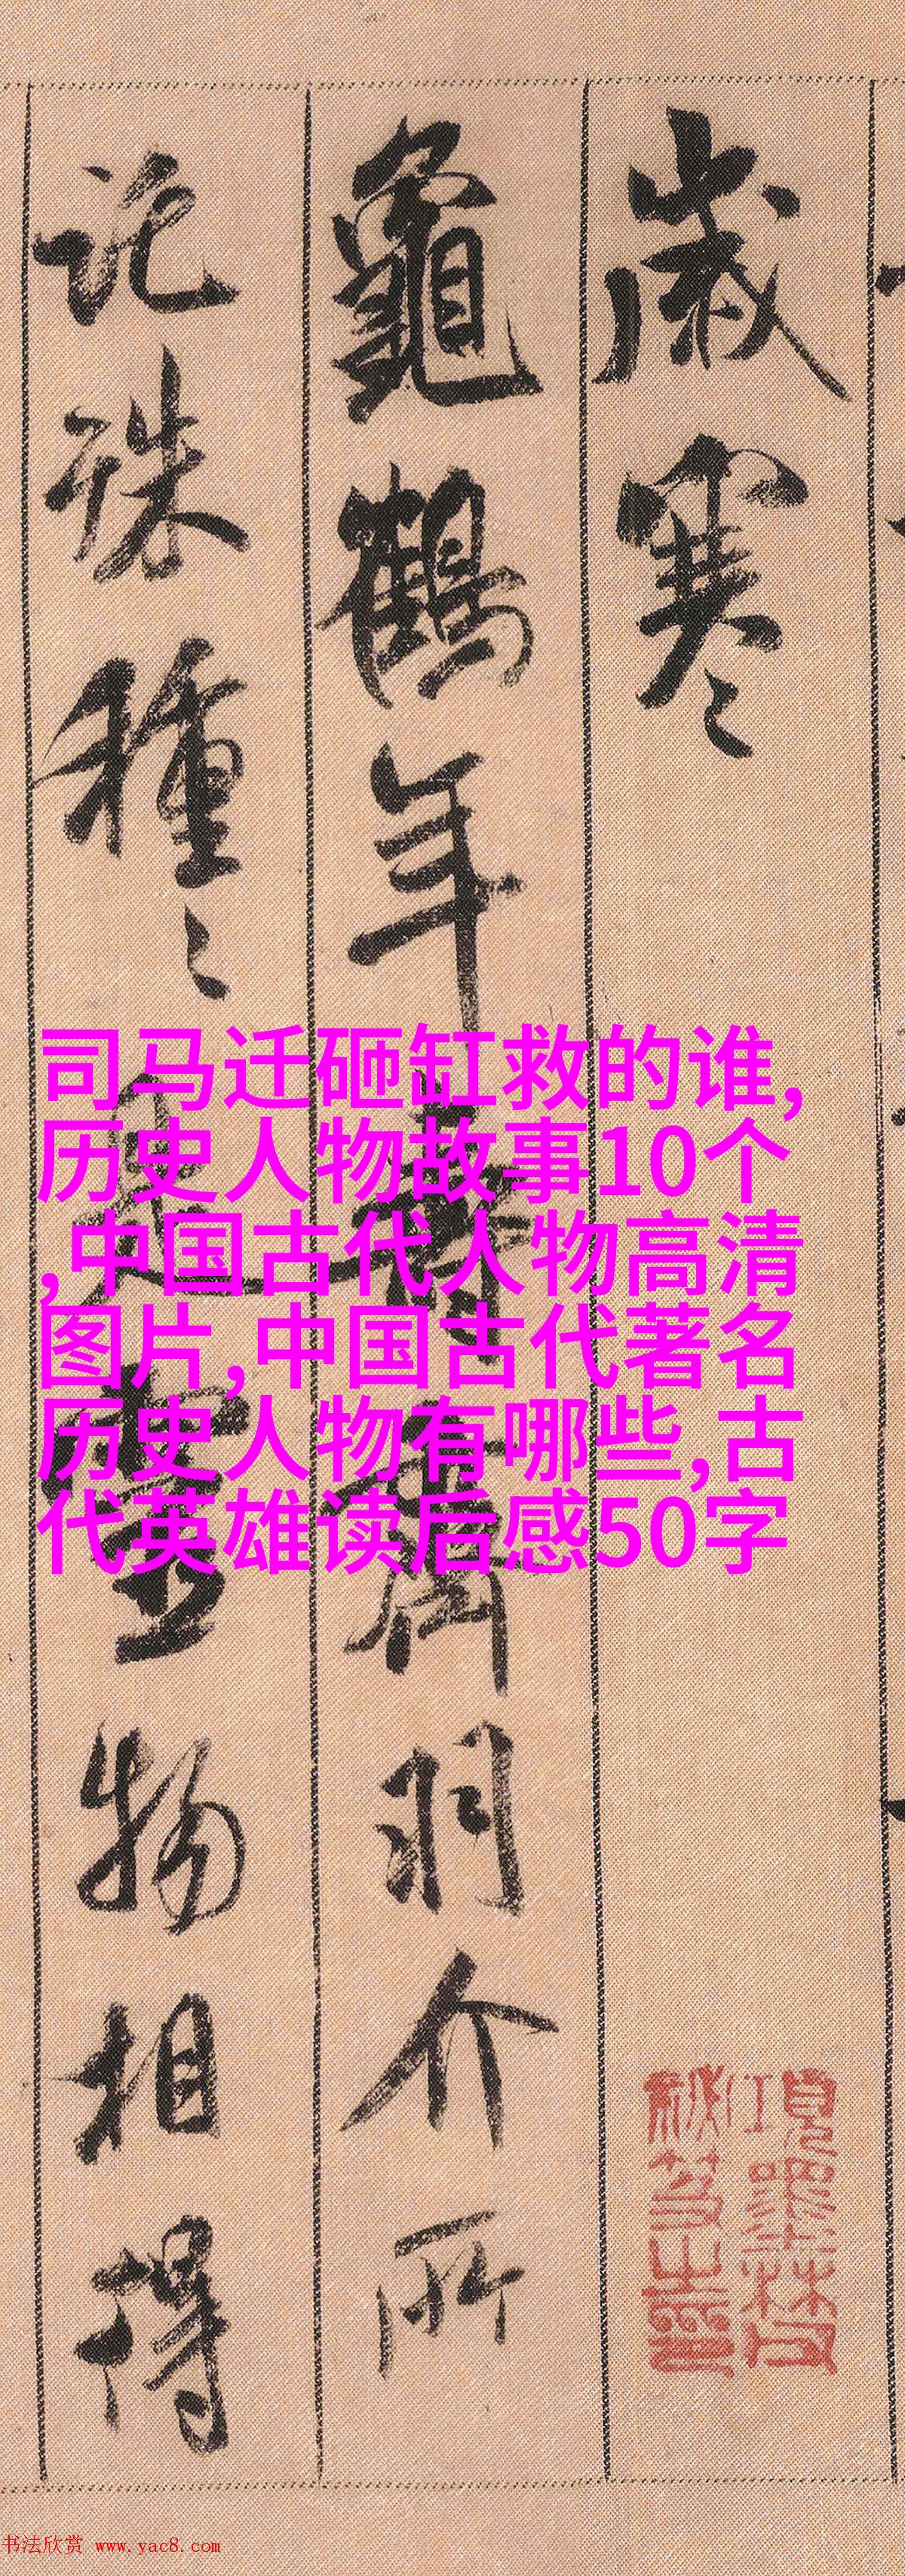 歲寒
龜鶴年壽齊羽介所
託殊種〻是靈物相得
司马迁砸缸救的谁,
历史人物故事10个
,中国古代人物高清
图片,中国古代著名
历史人物有哪些,古
代英雄读后感50字
項墨林父
秘笈之印
书法欣赏 www.yac8.com